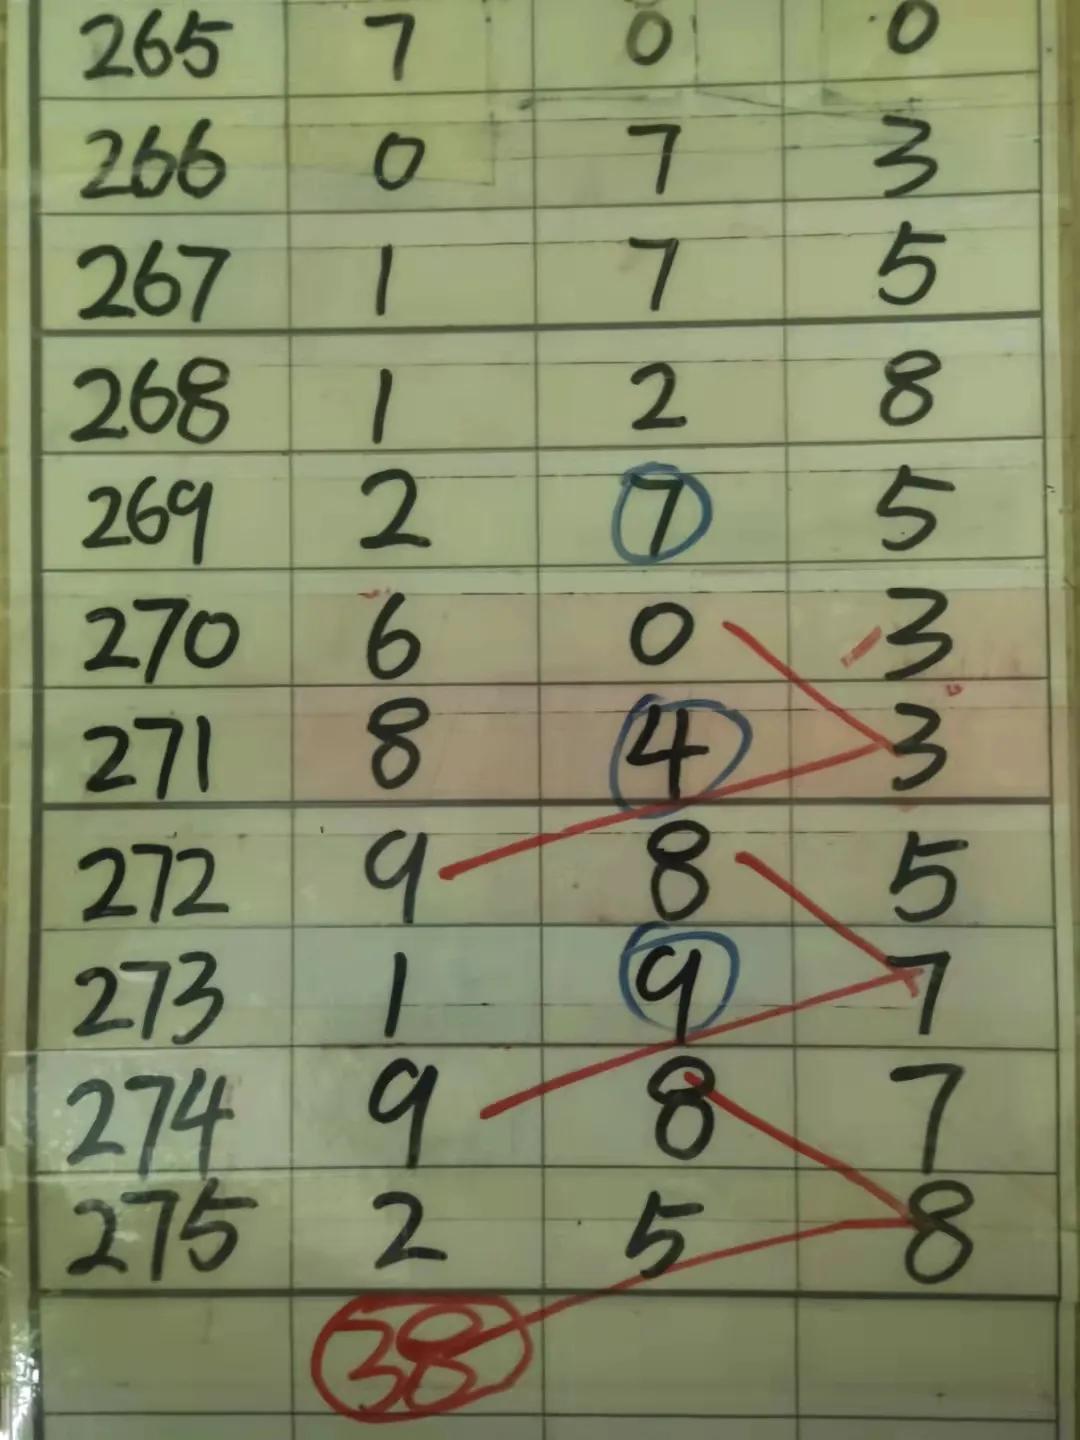 265 7 0 0
266 0 7 3
267 1 7 5
268 1 2 8
269 2 7 5
270 6 0 3
271 8 4 3
272 9 8 5
273 1 9 7
274 9 8 7
275 2 5 8
38